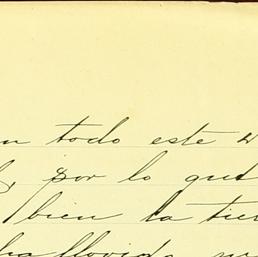 todo este
por lo que
bien la
ha llovido